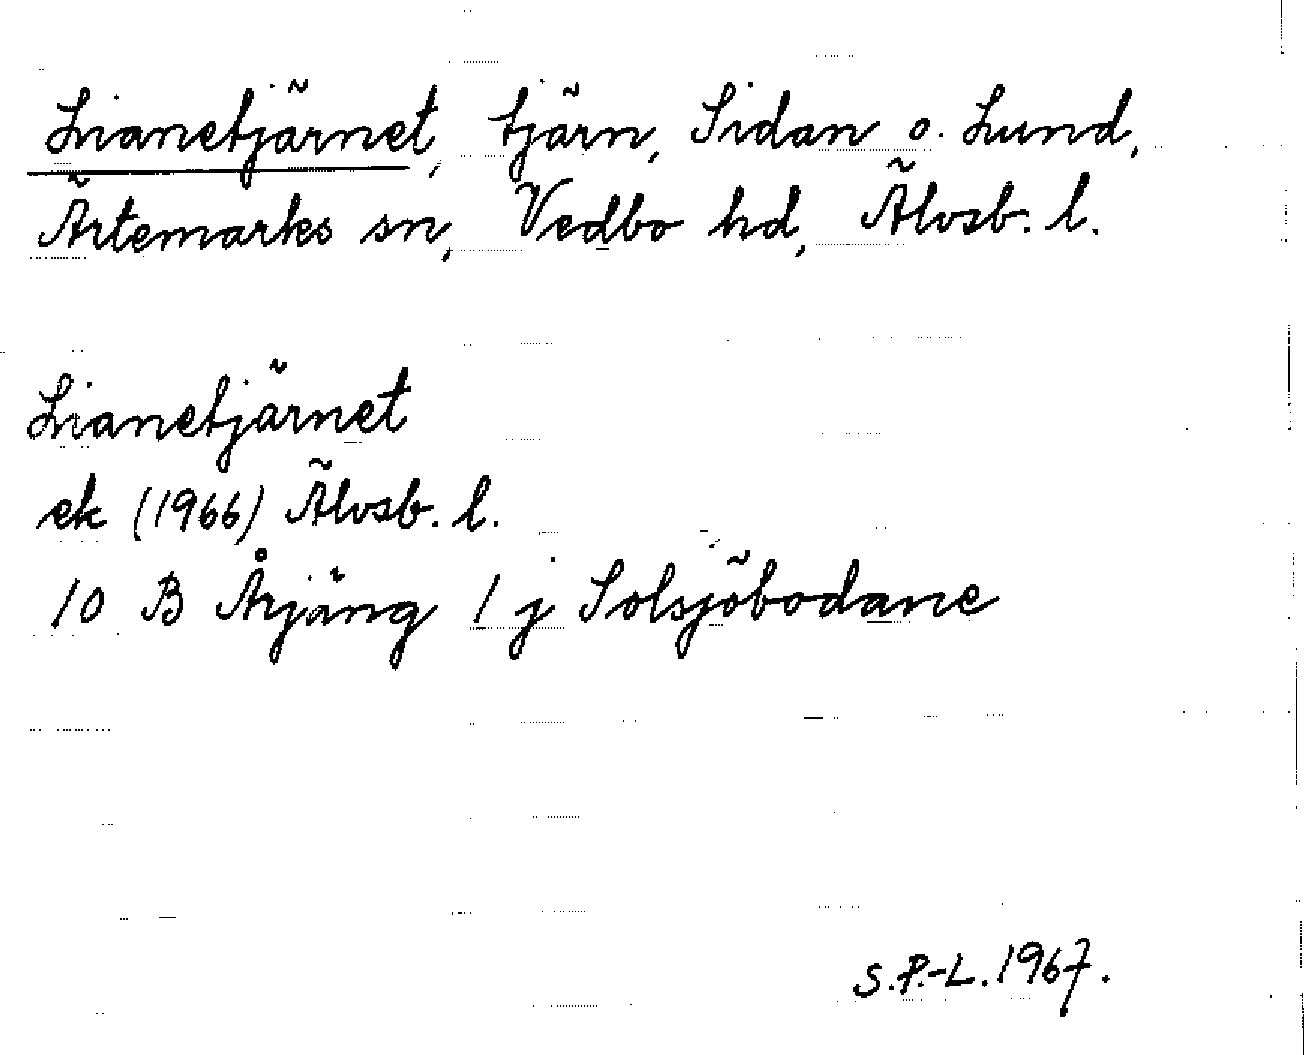 Lianetjärnet, tjärn, Sidan o. Lund,
Ärtemarks sn, Vedbo hd, Älvsb. l.
Lianetjärnet
ek (1966) Älvsb. l.
10 B Årjäng 1 j Solsjöbodane
S.P.-L. 1967.